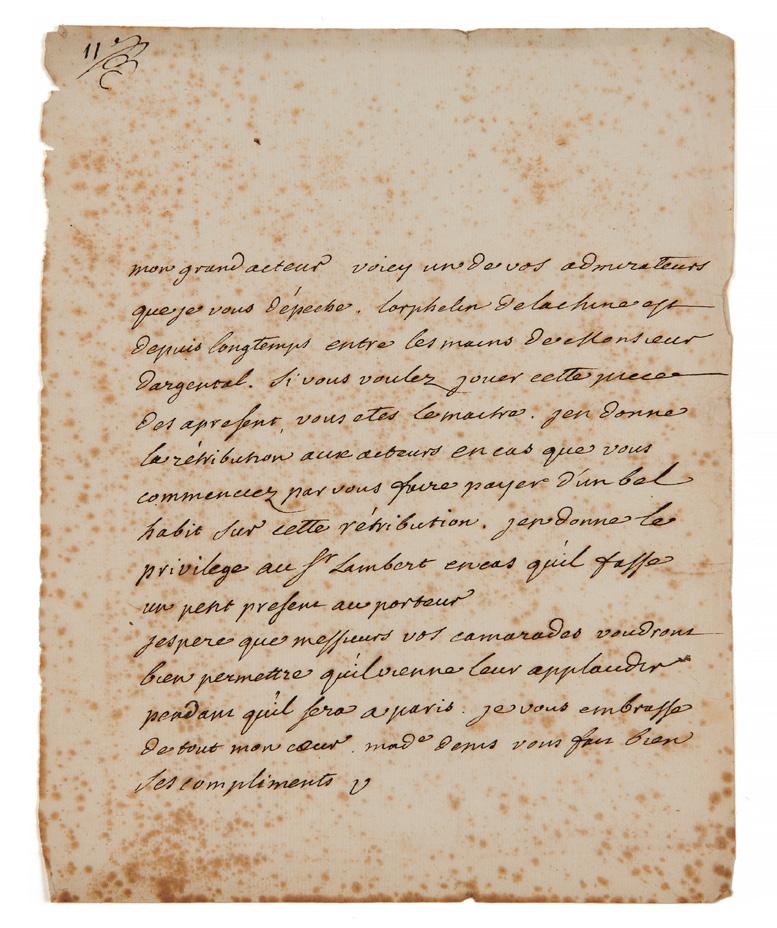 11e
mon grand acteur voicy un de vos admirateurs
que je vous dépeche. lorphelin delachine est
depuis longtemps entre les mains de Monsieur
dargental. si vous voulez jouer cette piece
des apresent, vous etes le maitre. jen donne
la rétribution aux acteurs en cas que vous
commenciez par vous faire payer d'un bel
habit sur cette rétribution. jen donne le
privilege au Sr Lambert encas qu'il fasse
un petit present au porteur
jespere que messieurs vos camarades voudront
bien permettre qu'il vienne leur applaudir
pendant qu'il sera a paris. je vous embrasse
de tout mon cœur. made denis vous fait bien
ses compliments V